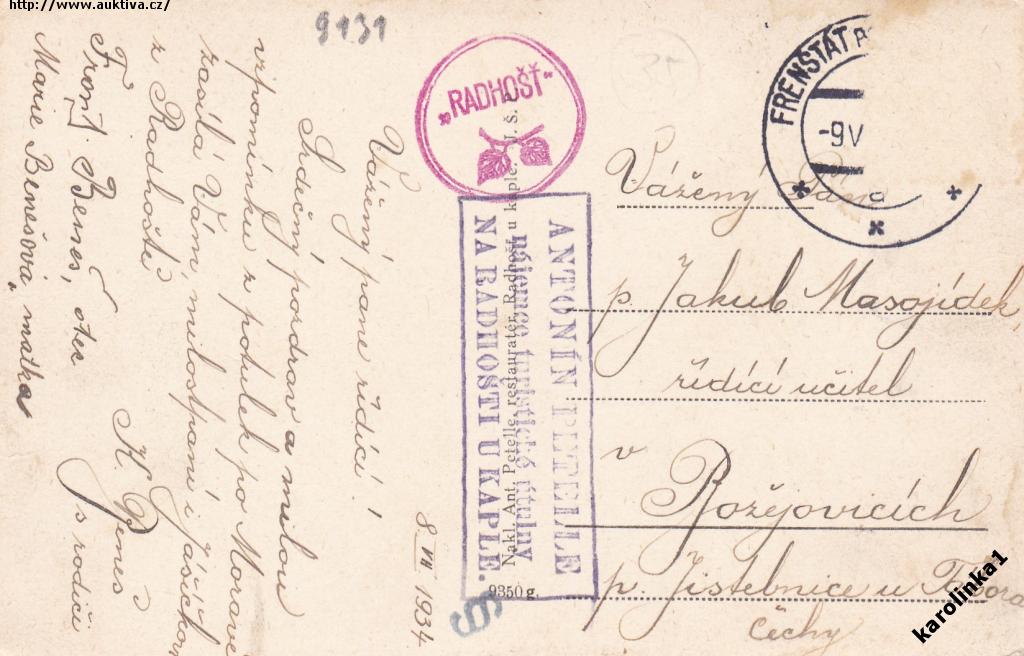 http://www.auktiva.cz/
9131
„RADHOŠŤ"
FRENŠTÁT P
-9V
8 VII 1934.
Vážený pane řídící!
Srdečný pozdrav a milou
vzpomínku z potulek po Moravě
zasílá Vám, milostpaní i
z Radhoště
K. Beneš
s rodiči
Frant. Beneš, otec
Marie Benešová matka
ANTONÍN PETELLE
nájemce turistické útulny
NA RADHOSTI U KAPLE.
Nakl. Ant. Petelle, restauratér, Radhošť u kaple. J. Š.
9350 g.
Vážený Pan
p. Jakub Masojídek,
řídící učitel
v Božejovicích
p. Jistebnice u Tábora
Čechy
karolinka1